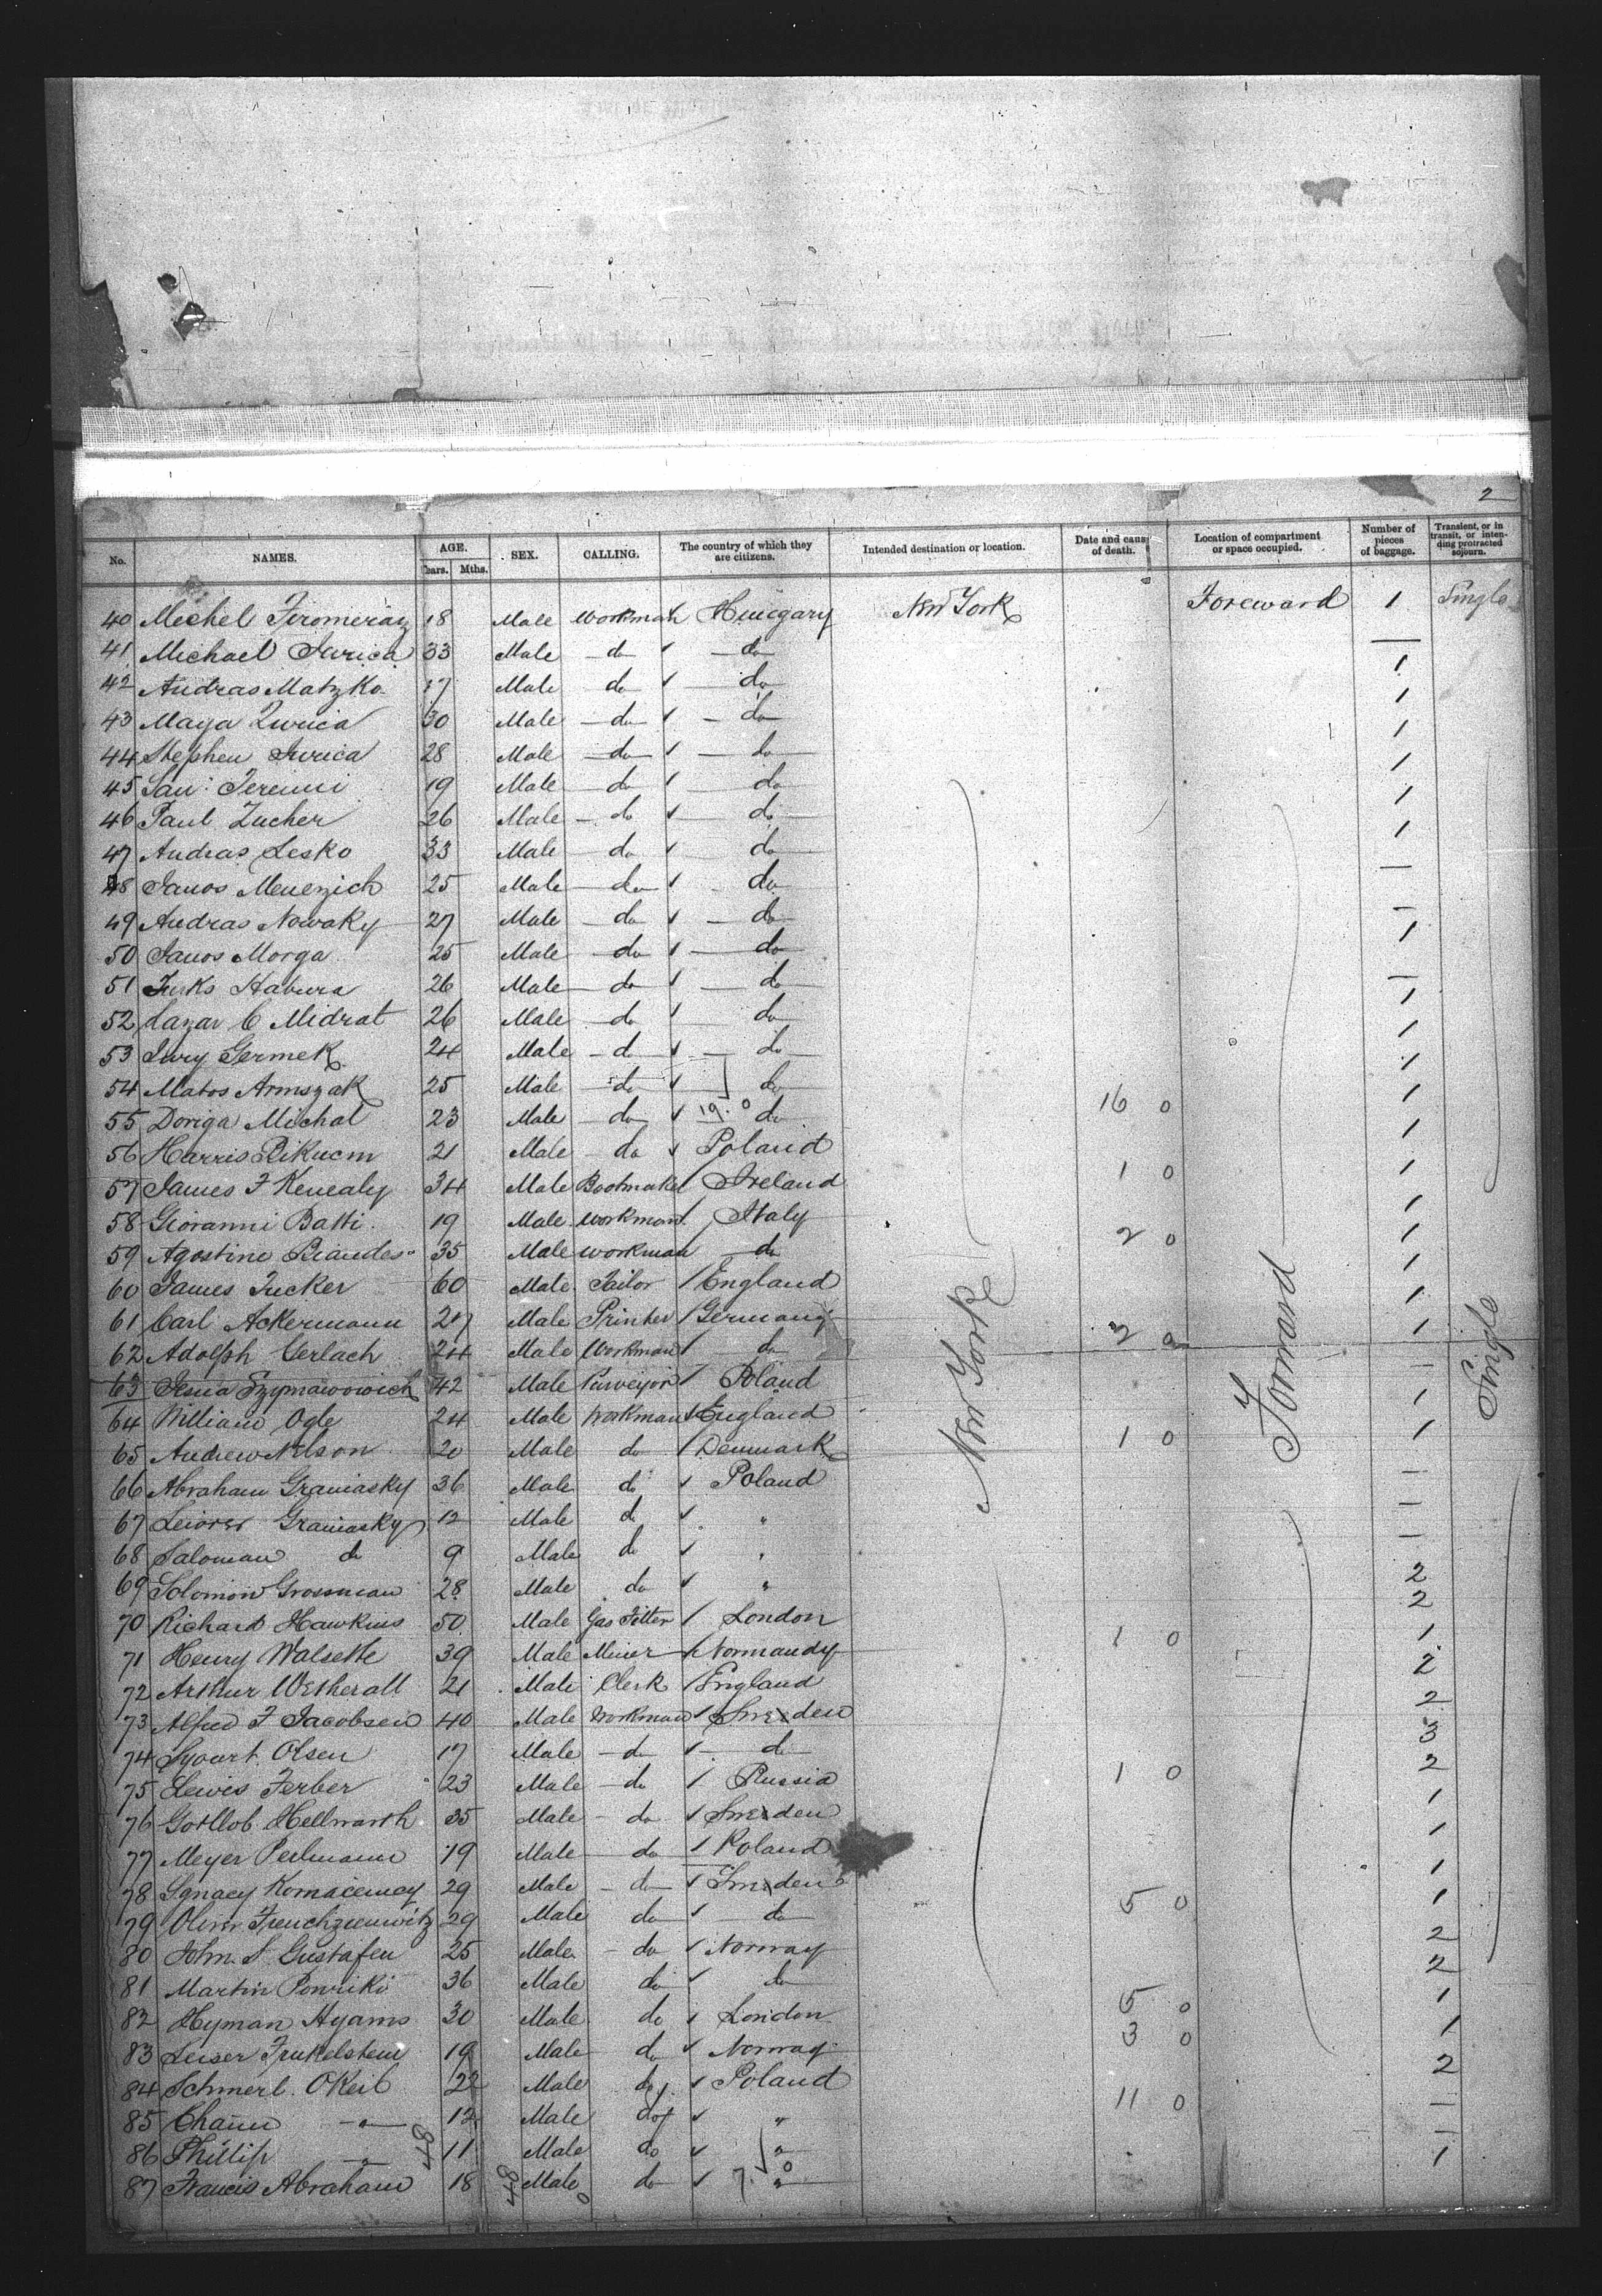 2
No. NAMES. AGE. Years. Mths. SEX. CALLING. The country of which they are citizens. Intended destination or location. Date and cause of death. Location of compartment or space occupied. Number of pieces of baggage. Transient, or in transit, or intending protracted sojourn.
40 Mechel 18 Male Workman Hungary New York Foreward 1 Single
41 Michael Jurica 33 Male do do —
42 Andras Matzko 17 Male do do 1
43 Maya Zurica 30 Male do do 1
44 Stephen Jurica 28 Male do do 1
45 19 Male do do 1
46 Paul Zucher 26 Male do do 1
47 Andras Lesko 33 Male do do 1
48 Janos Menezich 25 Male do do —
49 Andras Nowaky 27 Male do do —
50 Janos Morga 25 Male do do 1
51 Jurks Havura 26 Male do do —
52 Lazar C Midrat 26 Male do do 1
53 Jury Germek 24 Male do do 1
54 Matos Armszak 25 Male do do 1
55 Doriga Michal 23 Male do 19.0 do 16 0 1
56 Harris Pikucm 21 Male do Poland 1
57 James F Kenealy 34 Male Bootmaker Ireland 1 0 1
58 Giovanni Batti 19 Male Workman Italy 1
59 Agostino 35 Male workman do 2 0 1
60 James Tucker 60 Male Tailor England 1
61 Carl Ackermann 27 Male Printer Germany 1
62 Adolph Gerlach 24 Male Workman do 2 0 1
63 42 Male Purveyor Poland —
64 William Ogle 24 Male Workman England 1
65 Andrew Nelson 20 Male do Denmark 1 0 1
New York Forward Single
66 Abraham Graniasky 36 Male do Poland —
67 Graniasky 12 Male do " —
68 Saloman do 9 Male do " —
69 Solomon Grossman 28 Male do " 2
70 Richard Hawkins 50 Male Gas Fitter London 2
71 Henry Walsette 39 Male Miner Normandy 1 0 1
72 Arthur Wetherall 21 Male Clerk England 2
73 Alfred F Jacobsen 40 Male Workman Sweden 2
74 Olsen 17 Male do do 3
75 Lewis Ferber 23 Male do Russia 1 0 2
76 Gottlob Hellwarth 35 Male do Sweden 1
77 Meyer Perlmann 19 Male do Poland 1
78 Ignacy 29 Male do Sweden 1
79 Oliver 29 Male do do 5 0 1
80 John S Gustafen 25 Male do Norway 2
81 Martin Powriki 36 Male do do 2
82 Hyman Hyams 30 Male do London 5 0 1
83 Leiser Finkelstein 19 Male do Norway 3 0 1
84 Schmerl OKeil 22 Male do Poland 2
85 Chaim " 12 Male do " 11 0 —
86 Phillip " 11 Male do " —
87 Francis Abraham 18 Male do 7.0 " 1
48 48 0